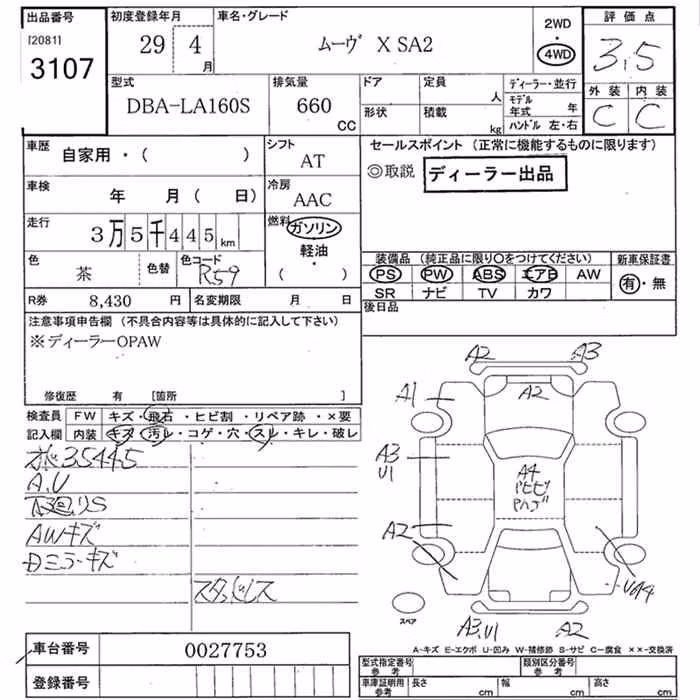 出品番号
[20811]
3107
初度登録年月
29 年 4 月
車名・グレード
ムーヴ X SA2
2WD
4WD
評価点
3.5
外装 内装
C C
型式
DBA-LA160S
排気量
660 CC
ドア
形状
定員 人
積載 kg
ディーラー・並行
モデル年式 年
ハンドル 左・右
車歴
自家用・( )
シフト
AT
車検
年 月( 日)
冷房
AAC
走行
3万5千445km
燃料
ガソリン
軽油
( )
色
茶
色替
色コード
R59
R券 8,430 円
名変期限 月 日
セールスポイント (正常に機能するものに限ります)
◎取説 ディーラー出品
装備品 (純正品に限り○をつけてください)
PS PW ABS エアB AW
SR ナビ TV カワ
新車保証書
有・無
後日品
注意事項申告欄 (不具合内容等は具体的に記入して下さい)
※ディーラーOPAW
修復歴 有 [箇所 ]
検査員 FW キズ・飛石・ヒビ割・リペア跡・×要
記入欄 内装 キズ・汚レ・コゲ・穴・スレ・キレ・破レ
35445
A.U
下廻りS
AWキズ
Dミラーキズ
スタッドレス
A2
A3
A1
A2
A3
U1
A4
Pヒビ
Pハゲ
A2
UA4
A3.U1
A2
スペア
車台番号 0027753
登録番号
A-キズ E-エクボ U-凹み W-補修跡 S-サビ C-腐食 ××-交換済
型式指定番号 参考
類別区分番号 参考
車庫証明用 参考
長さ cm
幅 cm
高さ cm